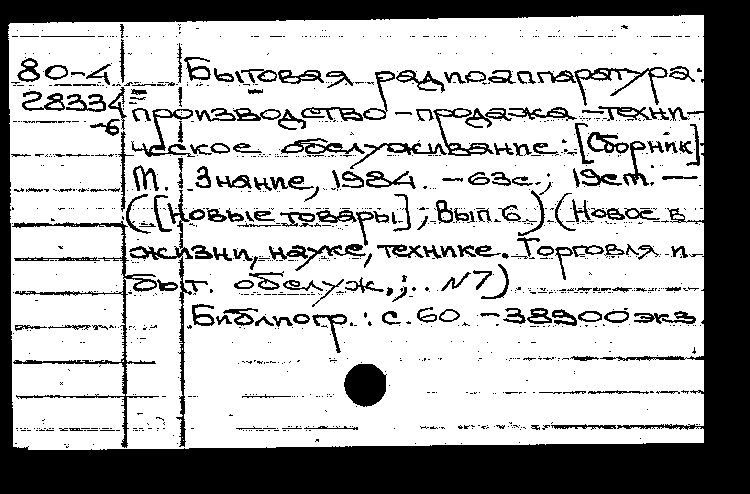 80-4 Бытовая радиоаппаратура:
28334 производство – продажа – техни-
-6 ческое обслуживание: [Сборник].
М. Знание, 1984. – 63 с.; 19 см. —
([Новые товары]; Вып. 6) (Новое в
жизни, науке, технике. Торговля и
быт. обслуж.,; .. N 7).
Библиогр.: с. 60. – 38900 экз.